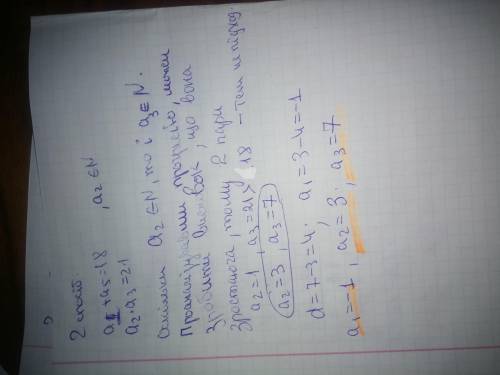 2 спосіб.
a1 + a5 = 18 , a2 ∈ N
a2 · a3 = 21
Оскільки a2 ∈ N, то і a3 ∈ N.
Проаналізувавши прогресію, можем
зробити висновок, що вона
зростаюча, тому 2 пари
a2 = 1 , a3 = 21 > 18 – теж не підход.
a2 = 3 , a3 = 7
d = 7 - 3 = 4. a1 = 3 - 4 = -1
a1 = -1 , a2 = 3 , a3 = 7